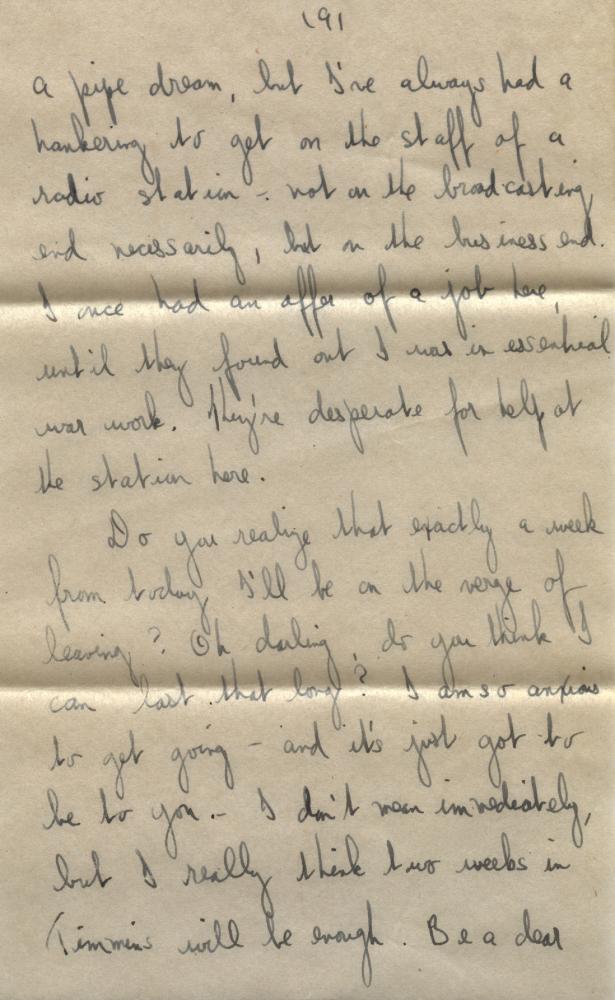 (9)
a pipe dream, but I've always had a
hankering to get on the staff of a
radio station - not on the broadcasting
end necissarily, but on the business end.
I once had an offer of a job here,
until they found out I was in essential
war work. They're desperate for help at
the station here.
Do you realize that exactly a week
from today I'll be on the verge of
leaving? Oh darling, do you think I
can last that long? I am so anxious
to get going - and it's just got to
be to you. - I don't mean immediately,
but I really think two weeks in
Timmins will be enough. Be a dear